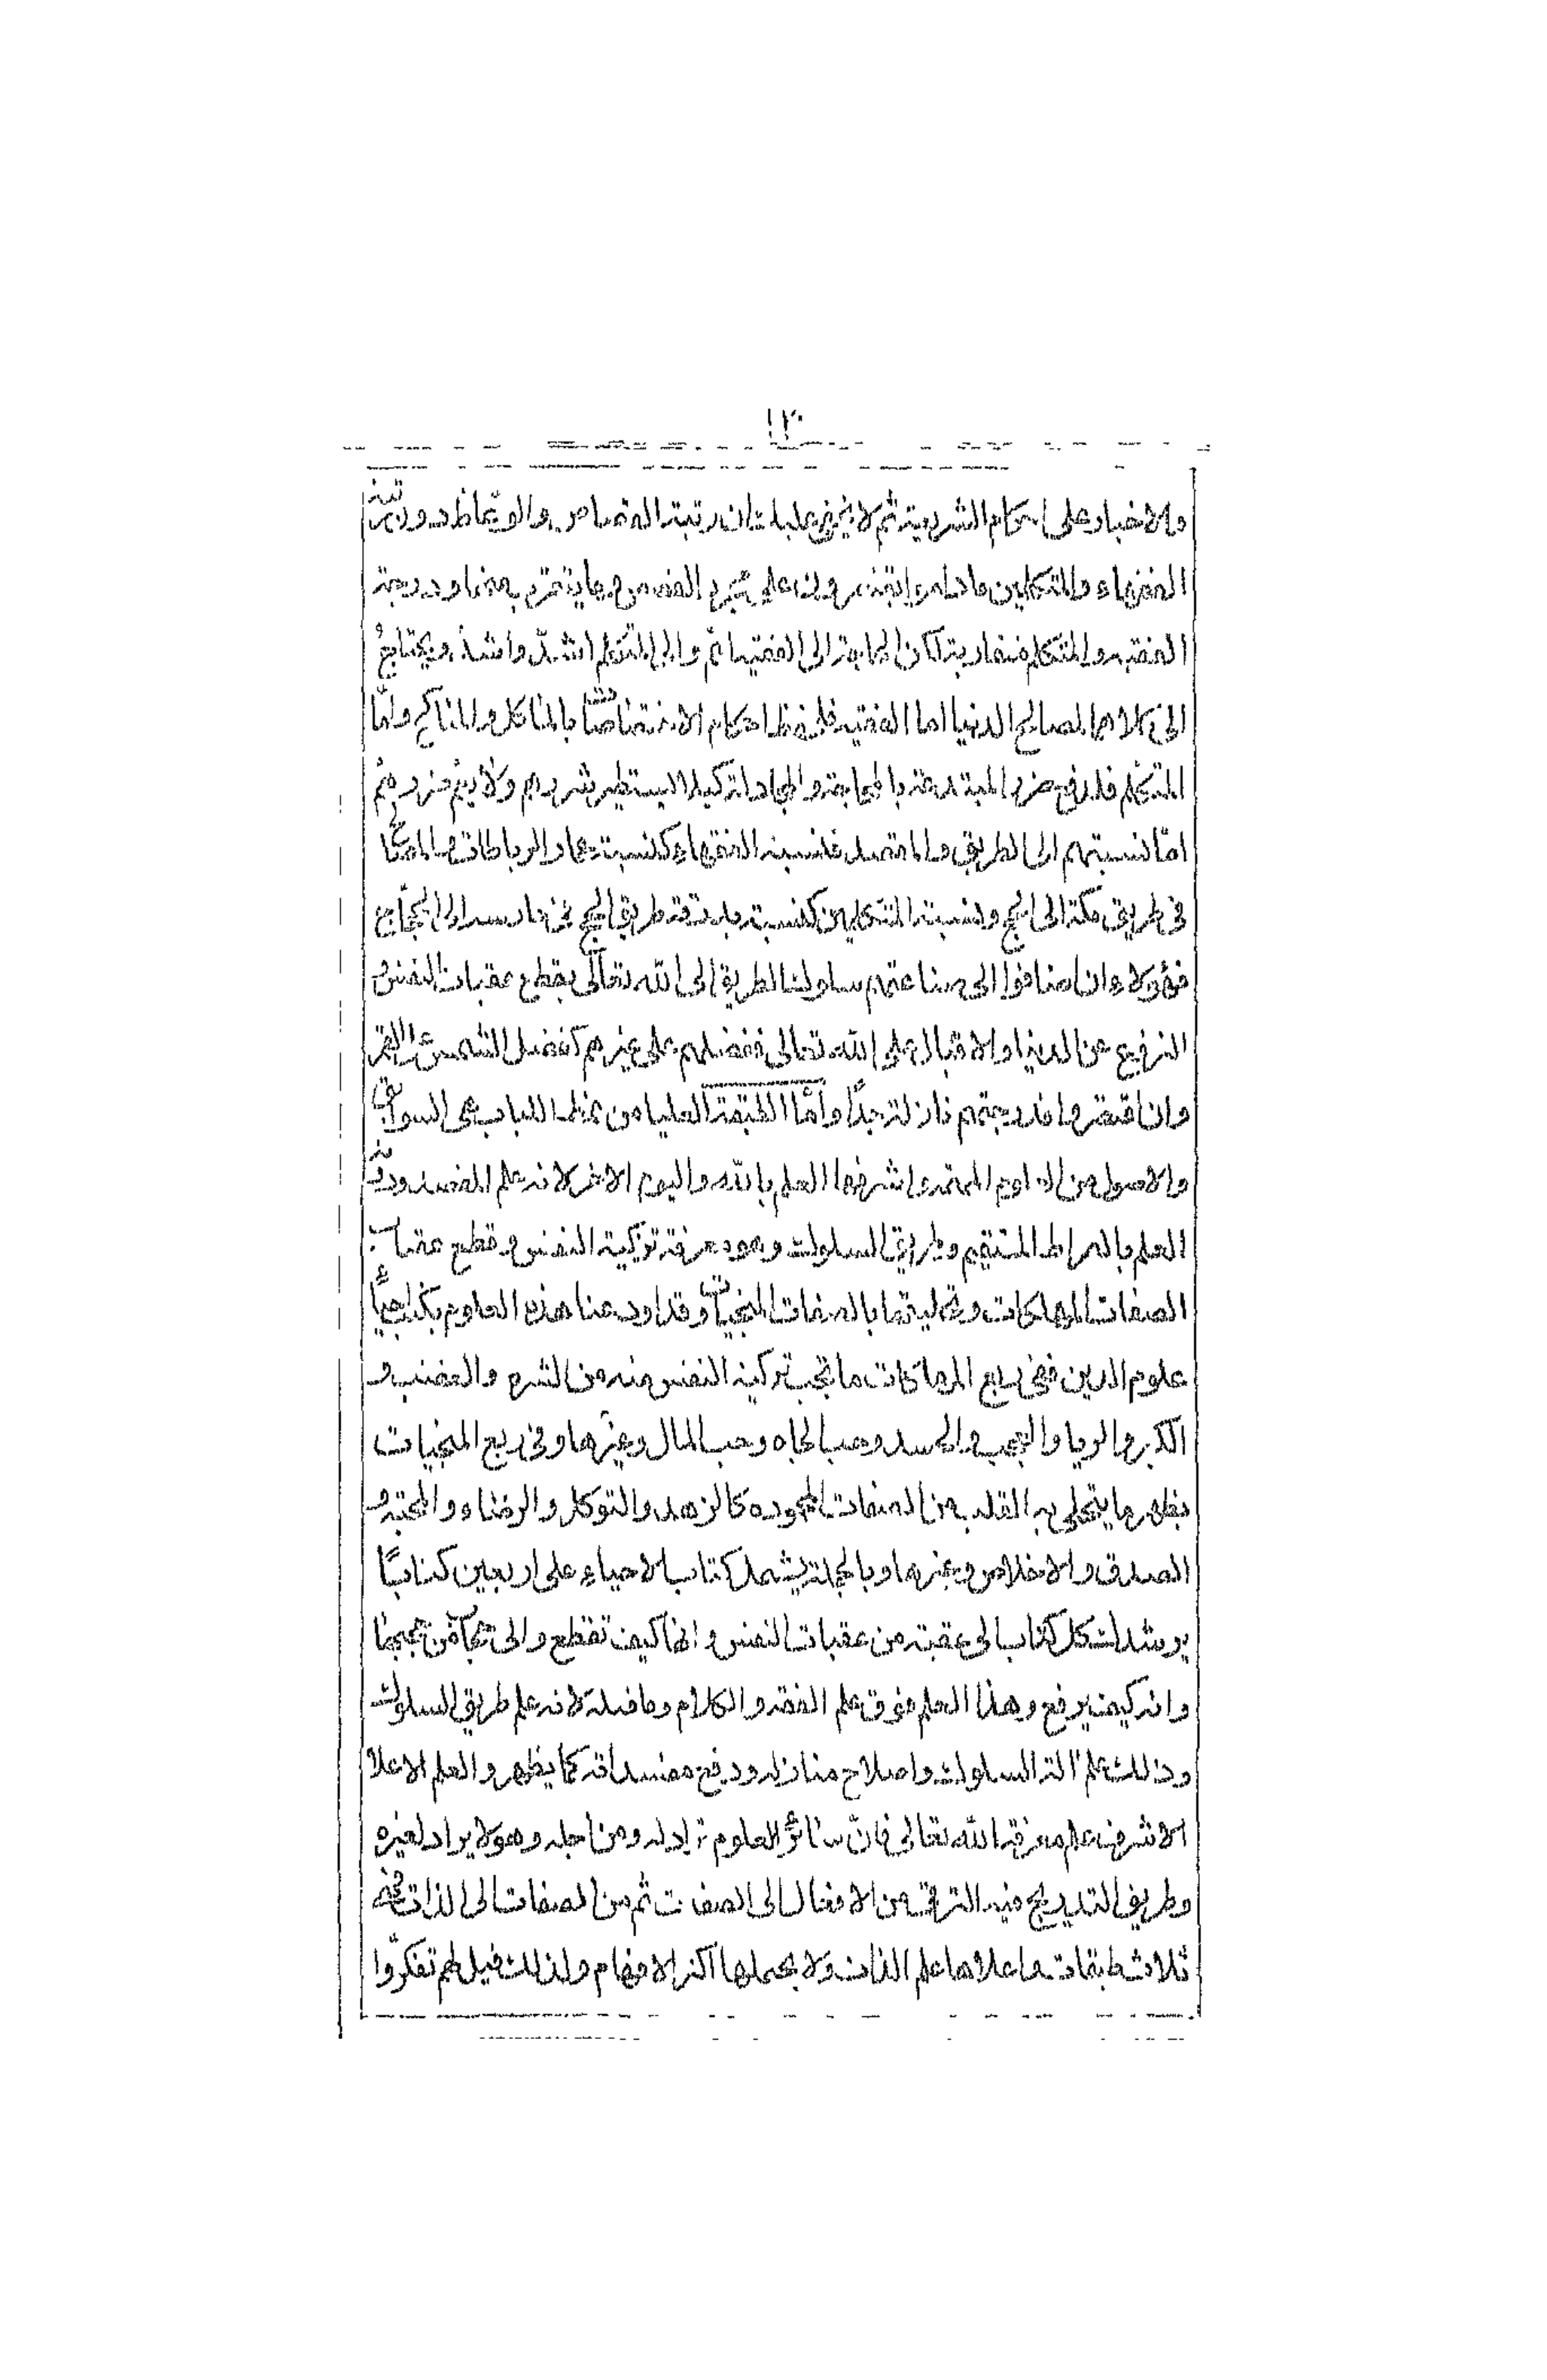 ١٢٠
والاخبار على احكام الشريعة ثم لا يخفى عليك ان رتبة القصاص والوعّاظ دون رتبة
الفقهاء والمتكلمين ما داموا يقتصرون على مجرد القصص وما يتقرّب منها ودرجة
الفقيه والمتكلم متقاربة لكن الحاجة الى الفقيه اعمّ والى المتكلم اشدّ واشدّ ويحتاج
الى كلاهما لمصالح الدنيا اما الفقيه فلحفظ احكام الاختصاصات بالمآكل والمناكح وامّا
المتكلم فلدفع ضرر المبتدعة بالمحاجة والمجادلة كيلا يستطير شررهم ولا يعمّ ضررهم
امّا نسبتهم الى الطريق والمقصد فنسبة الفقهاء كنسبة عمار الرباطات والمصالح
فى طريق مكة الى الحج ونسبة المتكلمين كنسبة بدرقة طريق الحج وحارسه الى الحجّاج
فهؤلاء ان اضافوا الى صناعتهم سلوك الطريق الى الله تعالى بقطع عقبات النفس و
النزوع عن الدنيا والاقبال على الله تعالى ففضلهم على غيرهم كفضل الشمس على القمر
وان اقتصروا فدرجتهم نازلة جدًّا وامّا الطبقة العليا من نمط اللباب هى السوابق
والاصول من العلوم المهمة واشرفها العلم بالله واليوم الاخر لانه علم المقصد ودونه
العلم بالصراط المستقيم وطريق السلوك وهو معرفة تزكية النفس وقطع عقبات
الصفات المهلكات وتحليتها بالصفات المنجيات وقد اودعنا هذه العلوم بكتب احياء
علوم الدين ففى ربع المهلكات ما تجب تزكية النفس منه من الشره والغضب و
الكبر والريا والعجب والحسد وحب الجاه وحب المال وغيرها وفى ربع المنجيات
يظهر ما يتحلى به القلب من الصفات المحموده كالزهد والتوكل والرضاء والمحبة و
الصدق والاخلاص وغيرها وبالجملة يشمل كتاب الاحياء على اربعين كتابًا
يرشدك كل كتاب الى عقبة من عقبات النفس وانها كيف تقطع والى حجاب من حجبها
وانه كيف يرفع وهذا العلم فوق علم الفقه والكلام وما قبله لانه علم طريق السلوك
وذلك علم آلة السلوك واصلاح منازله ودفع مفسداته كما يظهر والعلم الاعلا
الاشرف علم معرفة الله تعالى فانّ سائر العلوم تراد له ومن اجله وهو لا يراد لغيره
وطريق التدريج فيه الترقى من الافعال الى الصفات ثم من الصفات الى الذات فهى
ثلاث طبقات واعلاها علم الذات ولا يحملها اكثر الافهام ولذلك قيل لهم تفكروا